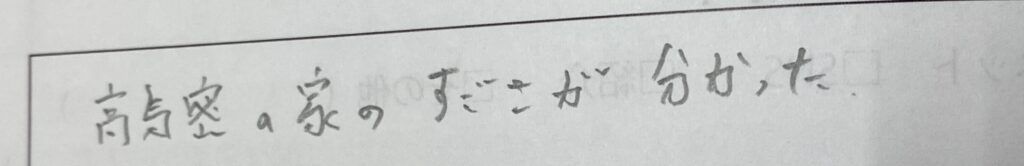 高気密の家のすごさが分かった